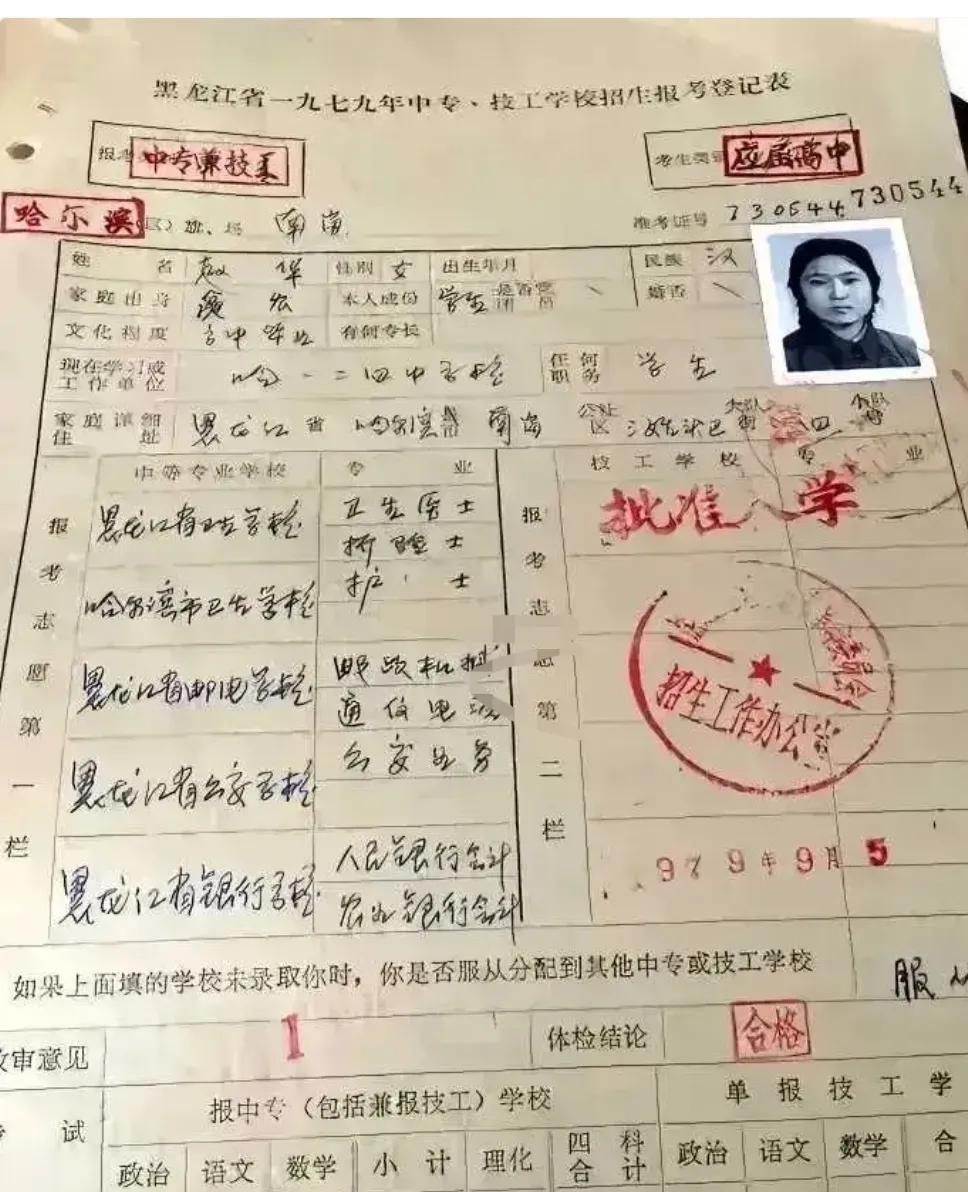 黑龙江省一九七九年中专、技工学校招生报考登记表
报考 中专兼技工
考生类别 应届高中
哈尔滨 区） 南岗
准考证号 730544 730544
姓名 赵华 性别 女 出生年月 民族 汉
家庭出身 本人成份 学生 是否党团员 婚否
文化程度 高中毕业 有何专长
现在学习或工作单位 哈一二四中学校 任何职务 学生
家庭详细住址 黑龙江省 哈尔滨市 南岗 公社区
中等专业学校 专业 技工学校 专业
报考志愿第一栏
黑龙江省卫生学校 卫生医士
检验士
哈尔滨市卫生学校 护士
黑龙江省邮电学校 邮政机械
通信电
黑龙江省公交学校 公交业务
黑龙江省银行学校 人民银行会计
农业银行会计
报考志愿第二栏
批准入学
招生工作办公室
979年9月5
如果上面填的学校未录取你时，你是否服从分配到其他中专或技工学校 服从
政审意见 体检结论 合格
考试 报中专（包括兼报技工）学校 单报技工学
政治 语文 数学 小计 理化 四科合计 政治 语文 数学 合